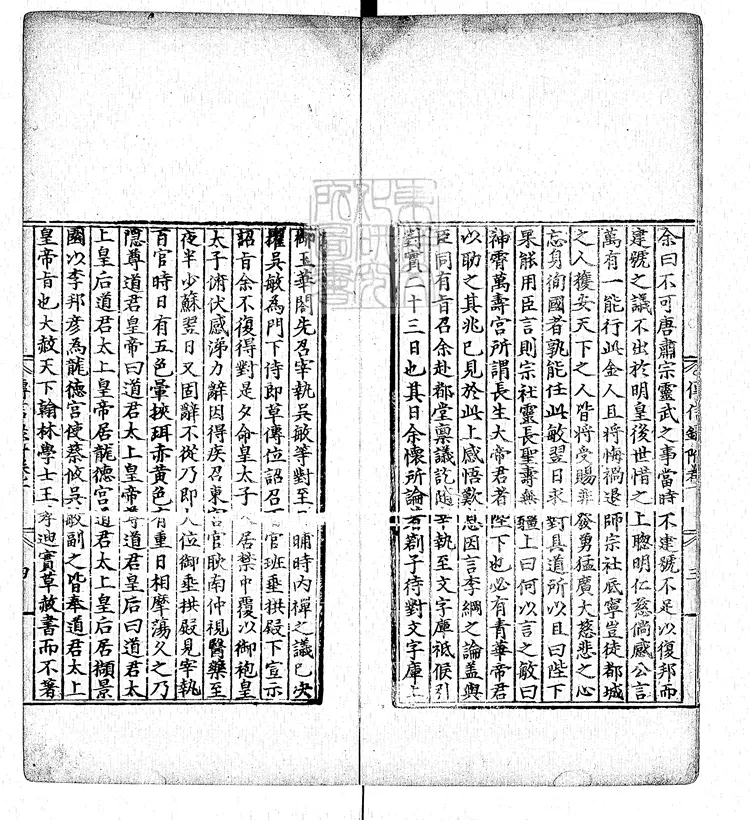 余曰不可唐肅宗靈武之事當時不建號不足以復邦而
建號之議不出於明皇後世惜之上聰明仁慈倘感公言
萬有一能行此金人且將悔禍退師宗社厎寧豈徒都城
之人獲安天下之人皆將受賜非發勇猛廣大慈悲之心
忘身徇國者孰能任此敏翌日求對具道所以且曰陛下
果能用臣言則宗社靈長聖壽無疆上曰何以言之敏曰
神霄萬壽宮所謂長生大帝君者陛下也必有青華帝君
以助之其兆已見於此上感悟歎息因言李綱之論蓋與
臣同有旨召余赴都堂稟議訖隨宰執至文字庫祗候引
對實二十三日也其日余懷所論著劄子待對文字庫上
傳信錄
三
御玉華閣先召宰執吳敏等對至日晡時內禪之議已決
擢吳敏為門下侍郎草傳位詔召百官班垂拱殿下宣示
詔旨余不復得對是夕命皇太子入居禁中覆以御袍皇
太子俯伏感涕力辭因得疾召東宮官耿南仲視醫藥至
夜半少蘇翌日又固辭不從乃即大位御垂拱殿見宰執
百官時日有五色暈挾珥赤黃色有重日相摩蕩久之乃
隱尊道君皇帝曰道君太上皇帝尊道君皇后曰道君太
上皇后道君太上皇帝居龍德宮道君太上皇后居擷景
國以李邦彥為龍德宮使蔡攸吳敏副之皆奉道君太上
皇帝旨也大赦天下翰林學士王孝迪實草赦書而不著
四